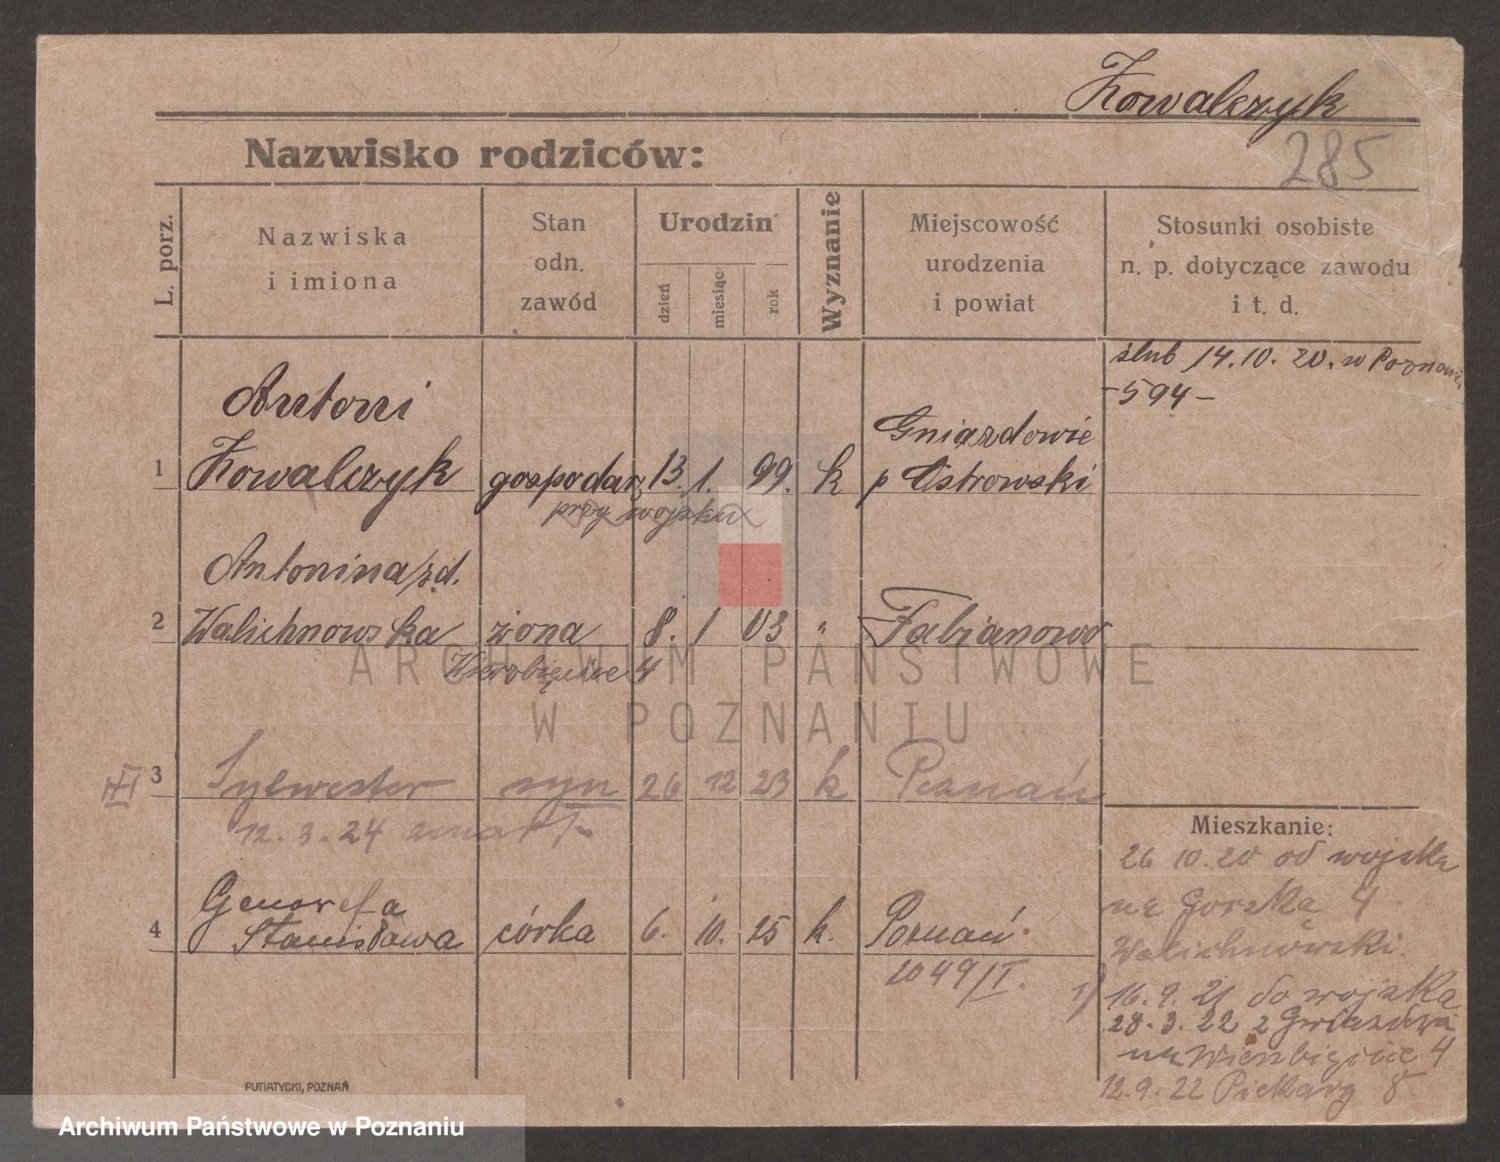 Kowalczyk
285
Nazwisko rodziców:
L. porz.
Nazwiska
i imiona
Stan
odn.
zawód
Urodzin
dzień
miesiąc
rok
Wyznanie
Miejscowość
urodzenia
i powiat
Stosunki osobiste
n. p. dotyczące zawodu
i t. d.
ślub 14.10.20. w Poznaniu
-594-
Antoni
1 Kowalczyk gospodarz 13. 1. 99. k
Gniazdowie
p Ostrowski
przy wojsku
Antonina/zd.
2 Walichnowska żona 8. 1 03 " Fabianowo
Wierzbięcice 4
ARCHIWUM PAŃSTWOWE
W POZNANIU
3 Sylwester syn 26 12 23 k Poznań
12. 3. 24 zmarł
Genowefa
4 Stanisława córka 6. 10. 25 k. Poznań
1049/I.
Mieszkanie:
26 10. 20 od wojska
na Gorzka 4
Walichnowski.
1) 16. 9. 21 do wojska
28. 3. 22 z Gniazdowa
na Wierzbięcice 4
12. 9. 22 Piekary 8
PUTIATYCKI, POZNAŃ
Archiwum Państwowe w Poznaniu